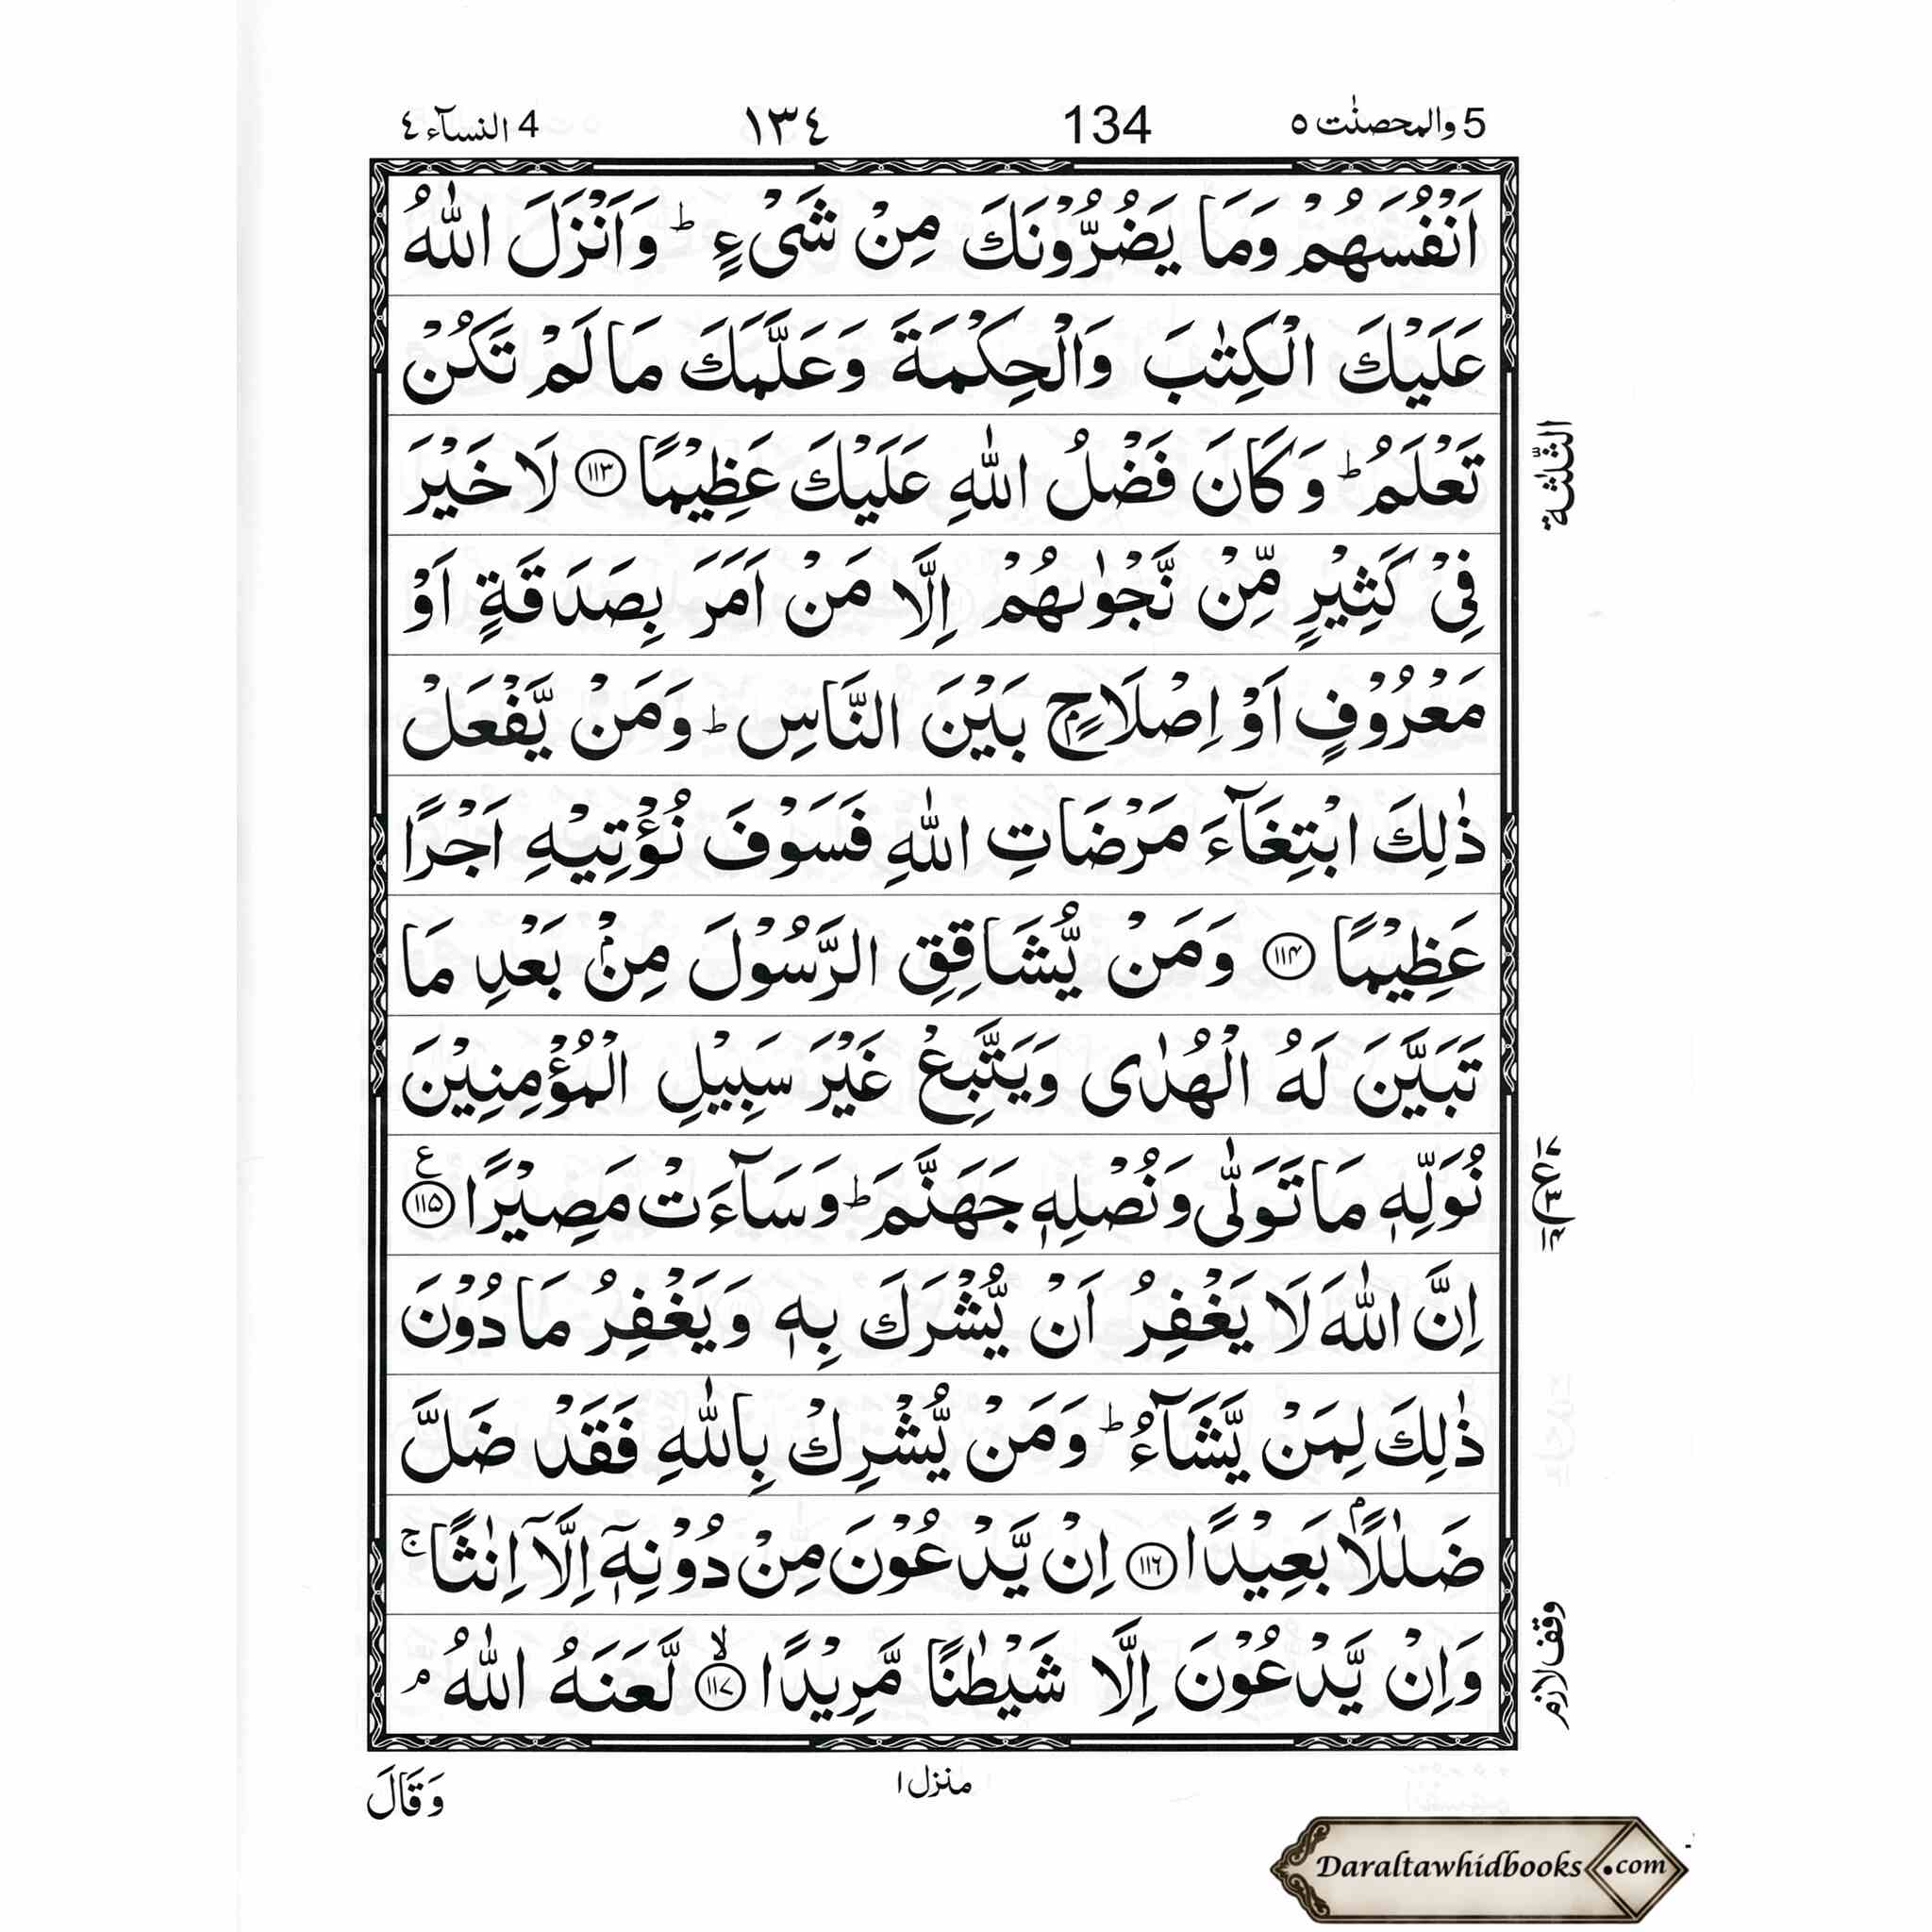 5 والمحصنٰت ٥ 134 ١٣٤ 4 النسآء ٤
اَنْفُسَهُمْ وَمَا يَضُرُّوْنَكَ مِنْ شَیْءٍ ؕ وَاَنْزَلَ اللّٰهُ
عَلَيْكَ الْكِتٰبَ وَالْحِكْمَةَ وَعَلَّمَكَ مَا لَمْ تَكُنْ
تَعْلَمُ ؕ وَكَانَ فَضْلُ اللّٰهِ عَلَيْكَ عَظِيْمًا ۝۱۱۳ لَا خَيْرَ
الثلٰثة
فِیْ كَثِيْرٍ مِّنْ نَّجْوٰىهُمْ اِلَّا مَنْ اَمَرَ بِصَدَقَةٍ اَوْ
مَعْرُوْفٍ اَوْ اِصْلَاحٍۭ بَيْنَ النَّاسِ ؕ وَمَنْ يَّفْعَلْ
ذٰلِكَ ابْتِغَآءَ مَرْضَاتِ اللّٰهِ فَسَوْفَ نُؤْتِيْهِ اَجْرًا
عَظِيْمًا ۝۱۱۴ وَمَنْ يُّشَاقِقِ الرَّسُوْلَ مِنْۢ بَعْدِ مَا
تَبَيَّنَ لَهُ الْهُدٰى وَيَتَّبِعْ غَيْرَ سَبِيْلِ الْمُؤْمِنِيْنَ
نُوَلِّهٖ مَا تَوَلّٰى وَنُصْلِهٖ جَهَنَّمَ ؕ وَسَآءَتْ مَصِيْرًا ۝۱۱۵ ع
اِنَّ اللّٰهَ لَا يَغْفِرُ اَنْ يُّشْرَكَ بِهٖ وَيَغْفِرُ مَا دُوْنَ
ذٰلِكَ لِمَنْ يَّشَآءُ ؕ وَمَنْ يُّشْرِكْ بِاللّٰهِ فَقَدْ ضَلَّ
ضَلٰلًاۢ بَعِيْدًا ۝۱۱۶ اِنْ يَّدْعُوْنَ مِنْ دُوْنِهٖۤ اِلَّاۤ اِنٰثًا ۚ
وَاِنْ يَّدْعُوْنَ اِلَّا شَيْطٰنًا مَّرِيْدًا ۝۱۱۷ ۙ لَّعَنَهُ اللّٰهُ ۘ
وقف لازم
منزل ١
وَقَالَ
Daraltawhidbooks.com